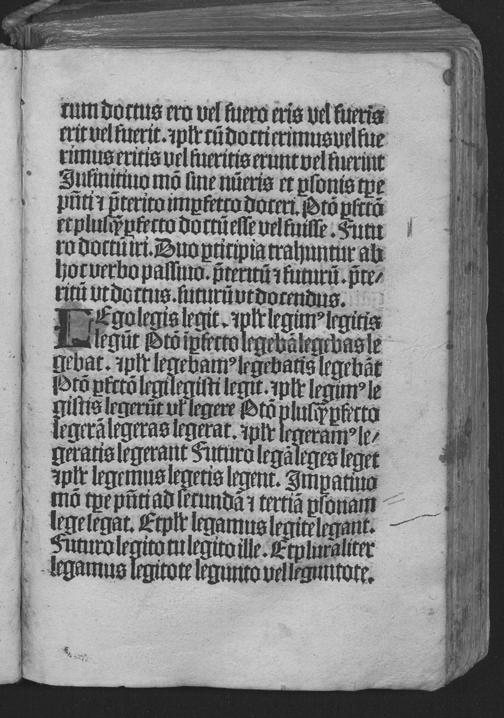 cum doctus ero vel fuero eris vel fueris
erit vel fuerit. ⁊plr̃ cũ docti erimus vel fue
rimus eritis vel fueritis erunt vel fuerint
Infinitiuo mõ sine nũeris et ꝑsonis tꝑe
pñti ⁊ p̃terito imꝑfecto doceri. P̃tõ ꝑfctõ
et plusq̃ꝑfecto doctũ esse vel fuisse. Futu
ro doctũ iri. Duo ꝑticipia trahuntur ab
hoc verbo passiuo. p̃teritũ ⁊ futurũ. p̃te/
ritũ vt doctus. futurũ vt docendus.
LEgo legis legit. ⁊plr̃ legimꝰ legitis
legũt P̃tõ iꝑfecto legebã legebas le
gebat. ⁊plr̃ legebamꝰ legebatis legebãt
P̃tõ ꝑfctõ legi legisti legit. ⁊plr̃ legimꝰ le
gistis legerũt vl̃ legere P̃tõ plusq̃ꝑfecto
legerã legeras legerat. ⁊plr̃ legeramꝰ le/
geratis legerant Futuro legã leges leget
⁊plr̃ legemus legetis legent. Impatiuo
mõ tꝑe pñti ad secundã ⁊ tertiã ꝑsonam
lege legat. Et plr̃ legamus legite legant.
Futuro legito tu legito ille. Et pluraliter
legamus legitote legunto vel leguntote.